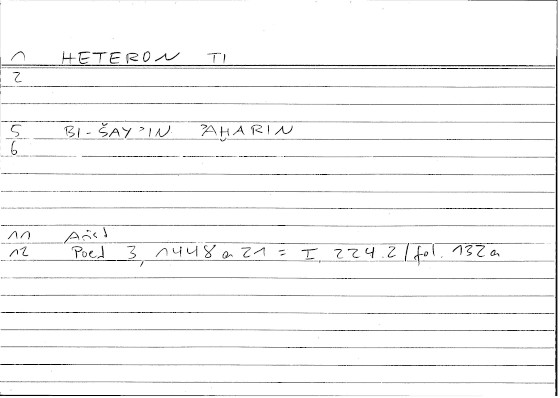 1 HETERON TI
2
5 BI-ŠAYʾIN ʾĀḪARIN
6
11 Arist
12 Poet 3, 1448 a 21 = I, 224.2 / fol. 132a